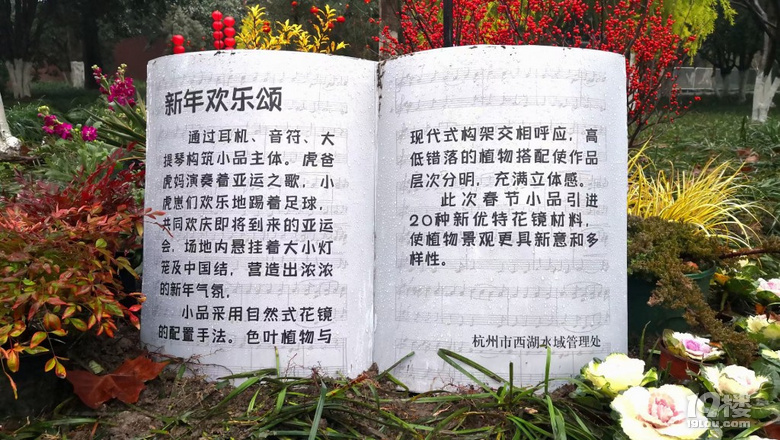 新年欢乐颂
通过耳机、音符、大
提琴构筑小品主体。虎爸
虎妈演奏着亚运之歌，小
虎崽们欢乐地踢着足球，
共同欢庆即将到来的亚运
会，场地内悬挂着大小灯
笼及中国结，营造出浓浓
的新年气氛，
小品采用自然式花镜
的配置手法。色叶植物与
现代式构架交相呼应，高
低错落的植物搭配使作品
层次分明，充满立体感。
此次春节小品引进
20种新优特花镜材料，
使植物景观更具新意和多
样性。
杭州市西湖水域管理处
19楼
19lou.com